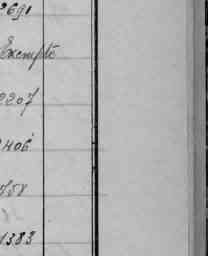 2691
Exempté
2207
2406
758
1383